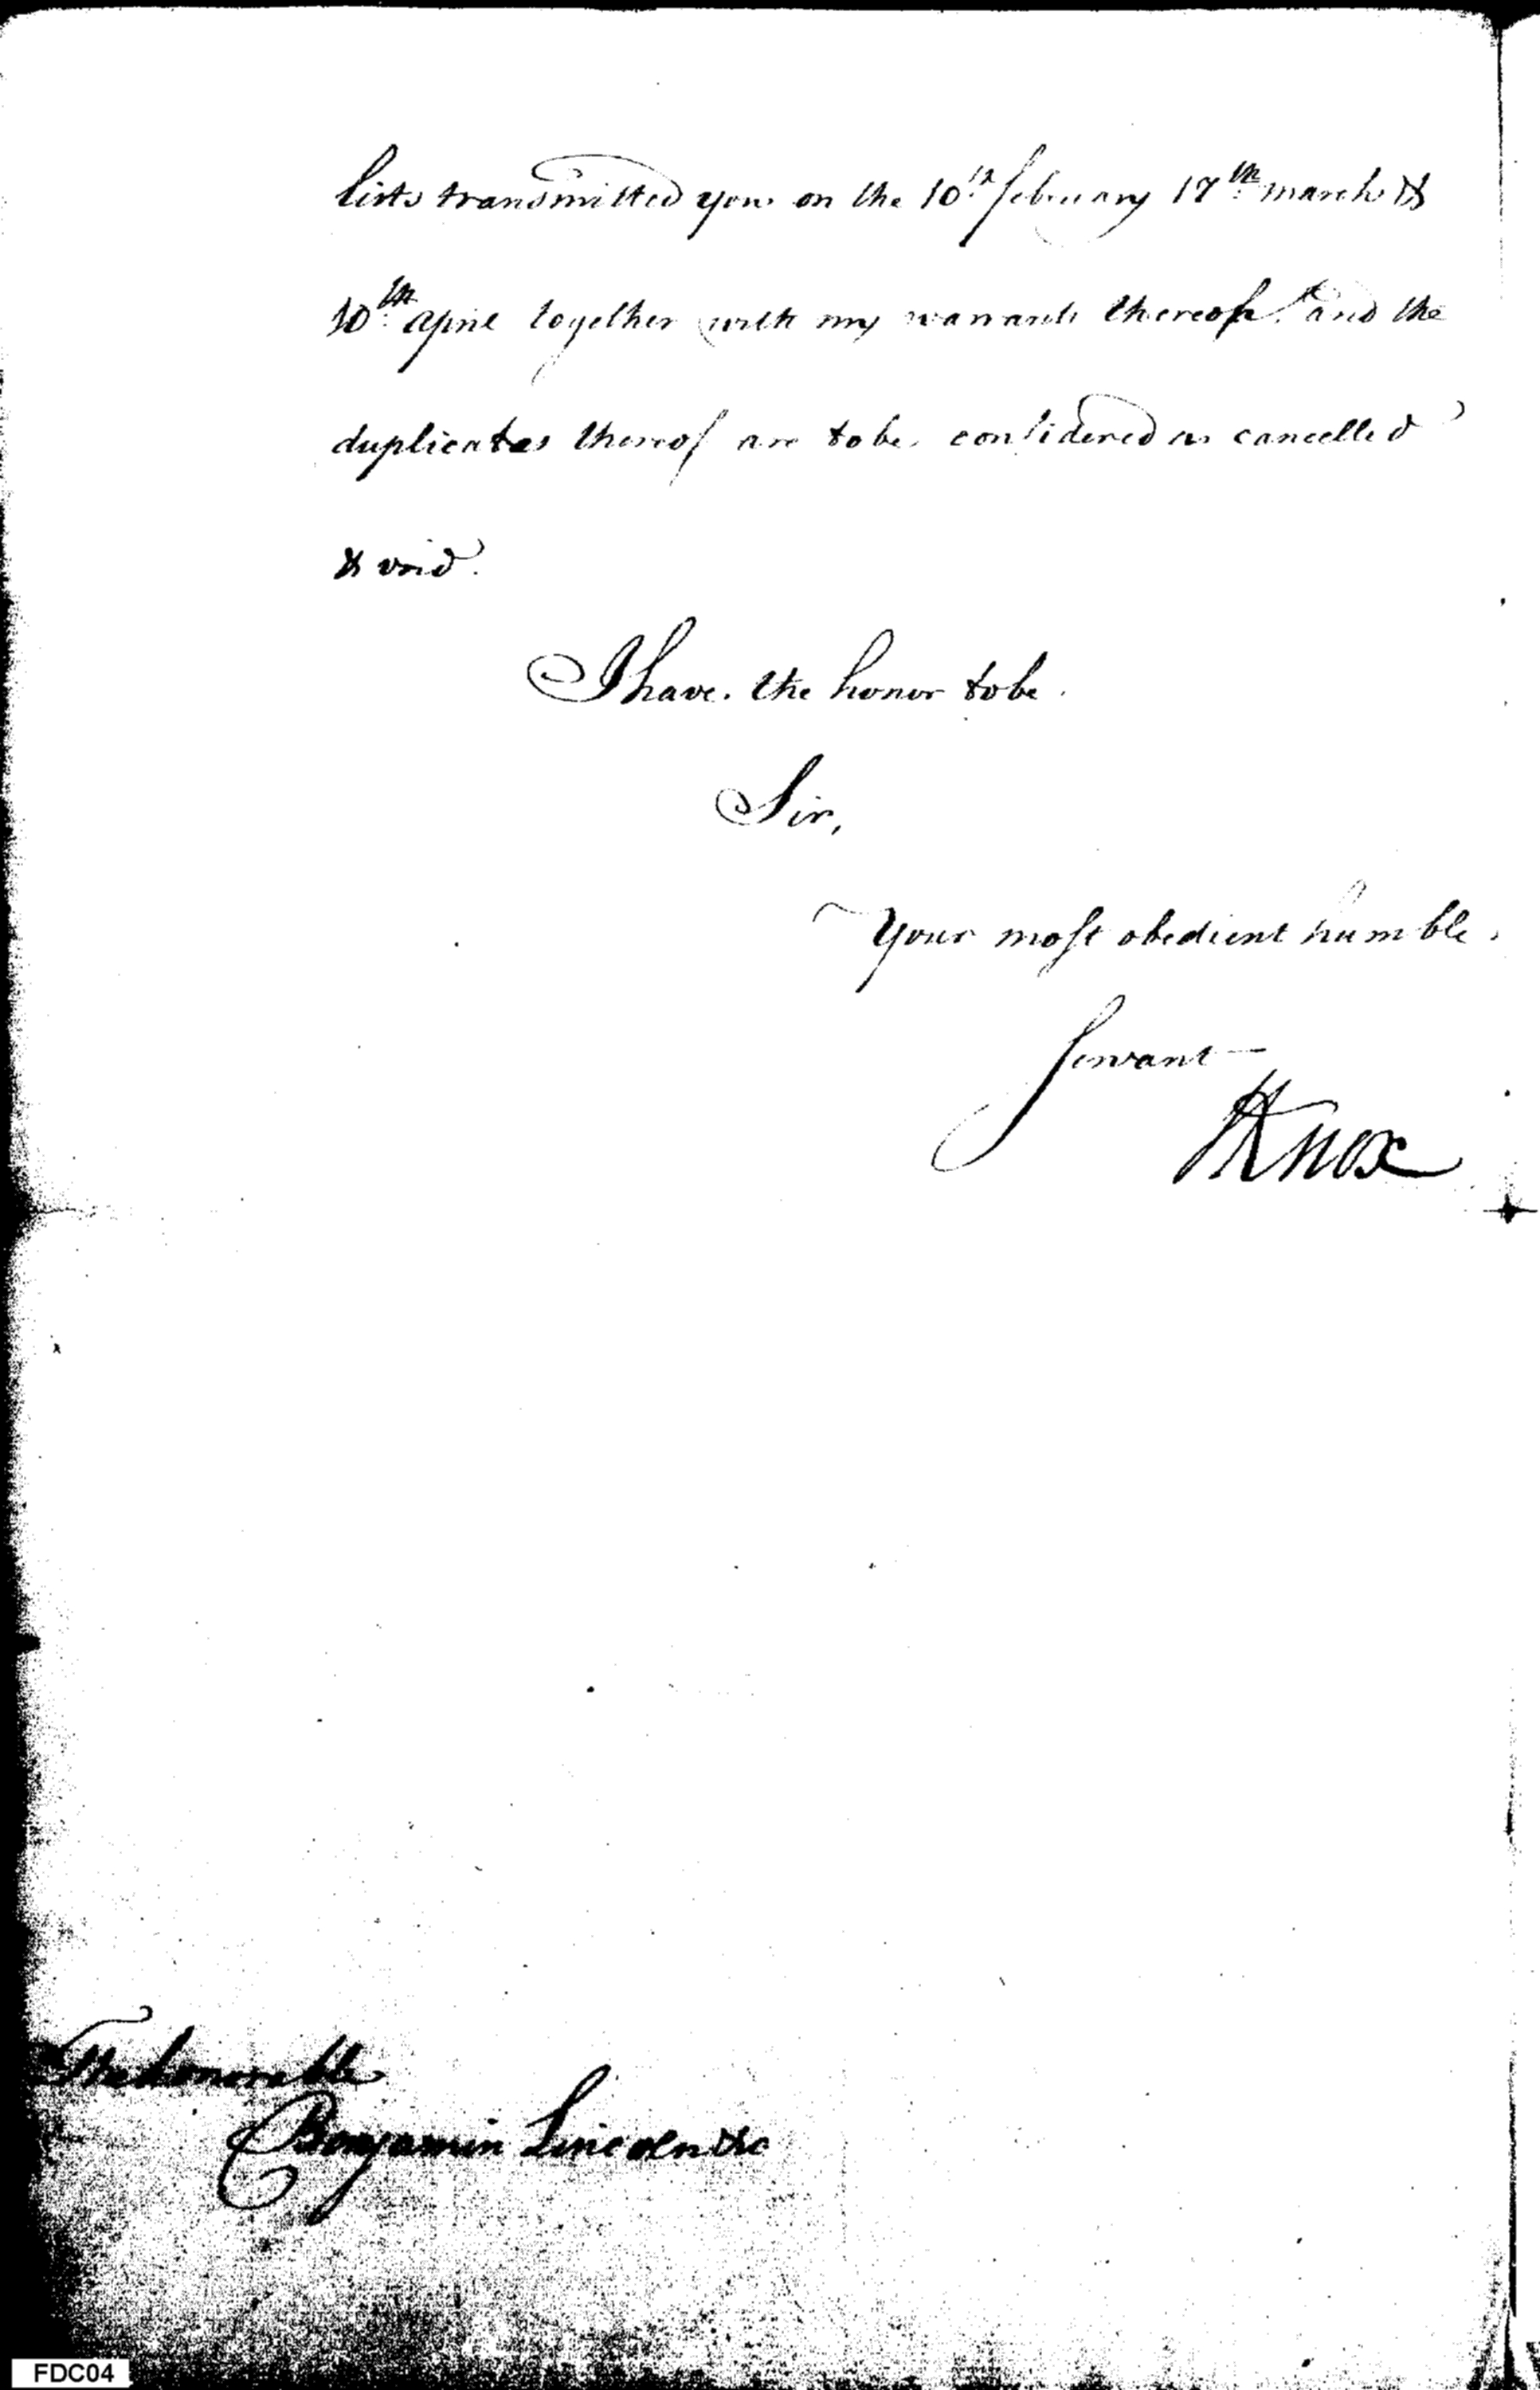 lists transmitted you on the 10th february 17th march &
10th april together with my warrants thereof and the
duplicates thereof are to be considered as cancelled
& void.
I have the honor to be
Sir,
Your most obedient humble
Servant
HKnox
The honorable
Benjamin Lincoln &c
FDC04